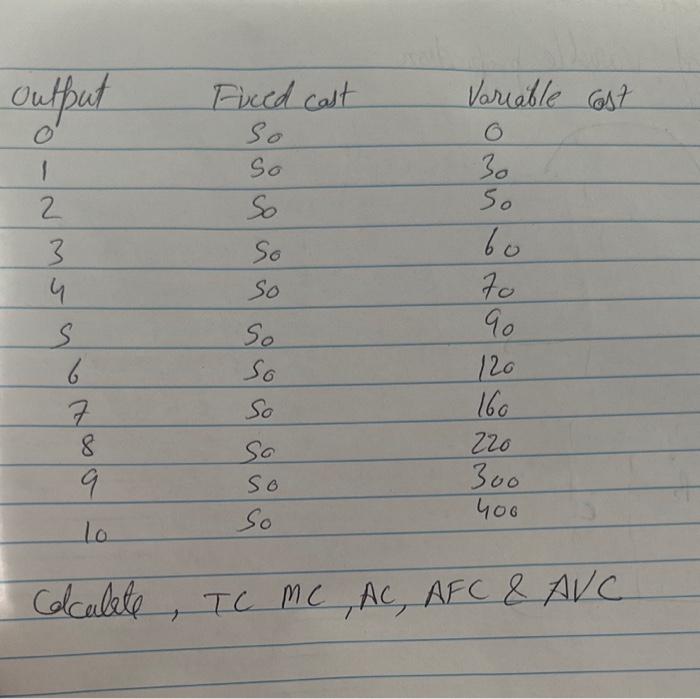 output Fixed cost Variable cost
0 50 0
1 50 30
2 50 50
3 50 60
4 50 70
5 50 90
6 50 120
7 50 160
8 50 220
9 50 300
10 50 400
Calculate, TC MC, AC, AFC & AVC